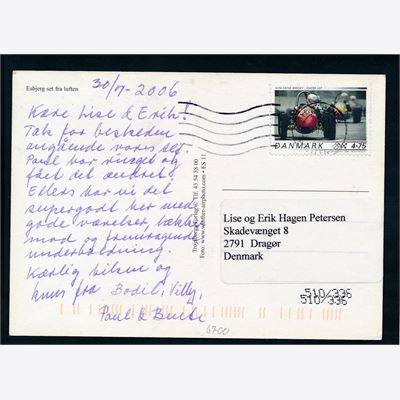 Esbjerg set fra luften
30/7-2006
Kære Lise & Erik!
Tak for beskeden
angående vores
Poul har ringet og
fået det ændret.
Ellers har vi det
supergodt her med
gode værelser, lækker
mad og fremragende
underholdning.
Kærlig hilsen og
knus fra Bodil, Villy,
Poul & Bente
6700
Foto: www.shutter-airphoto.com • ES 11
DANMARK 4.75
Lise og Erik Hagen Petersen
Skadevænget 8
2791 Dragør
Denmark
510/336
510/336